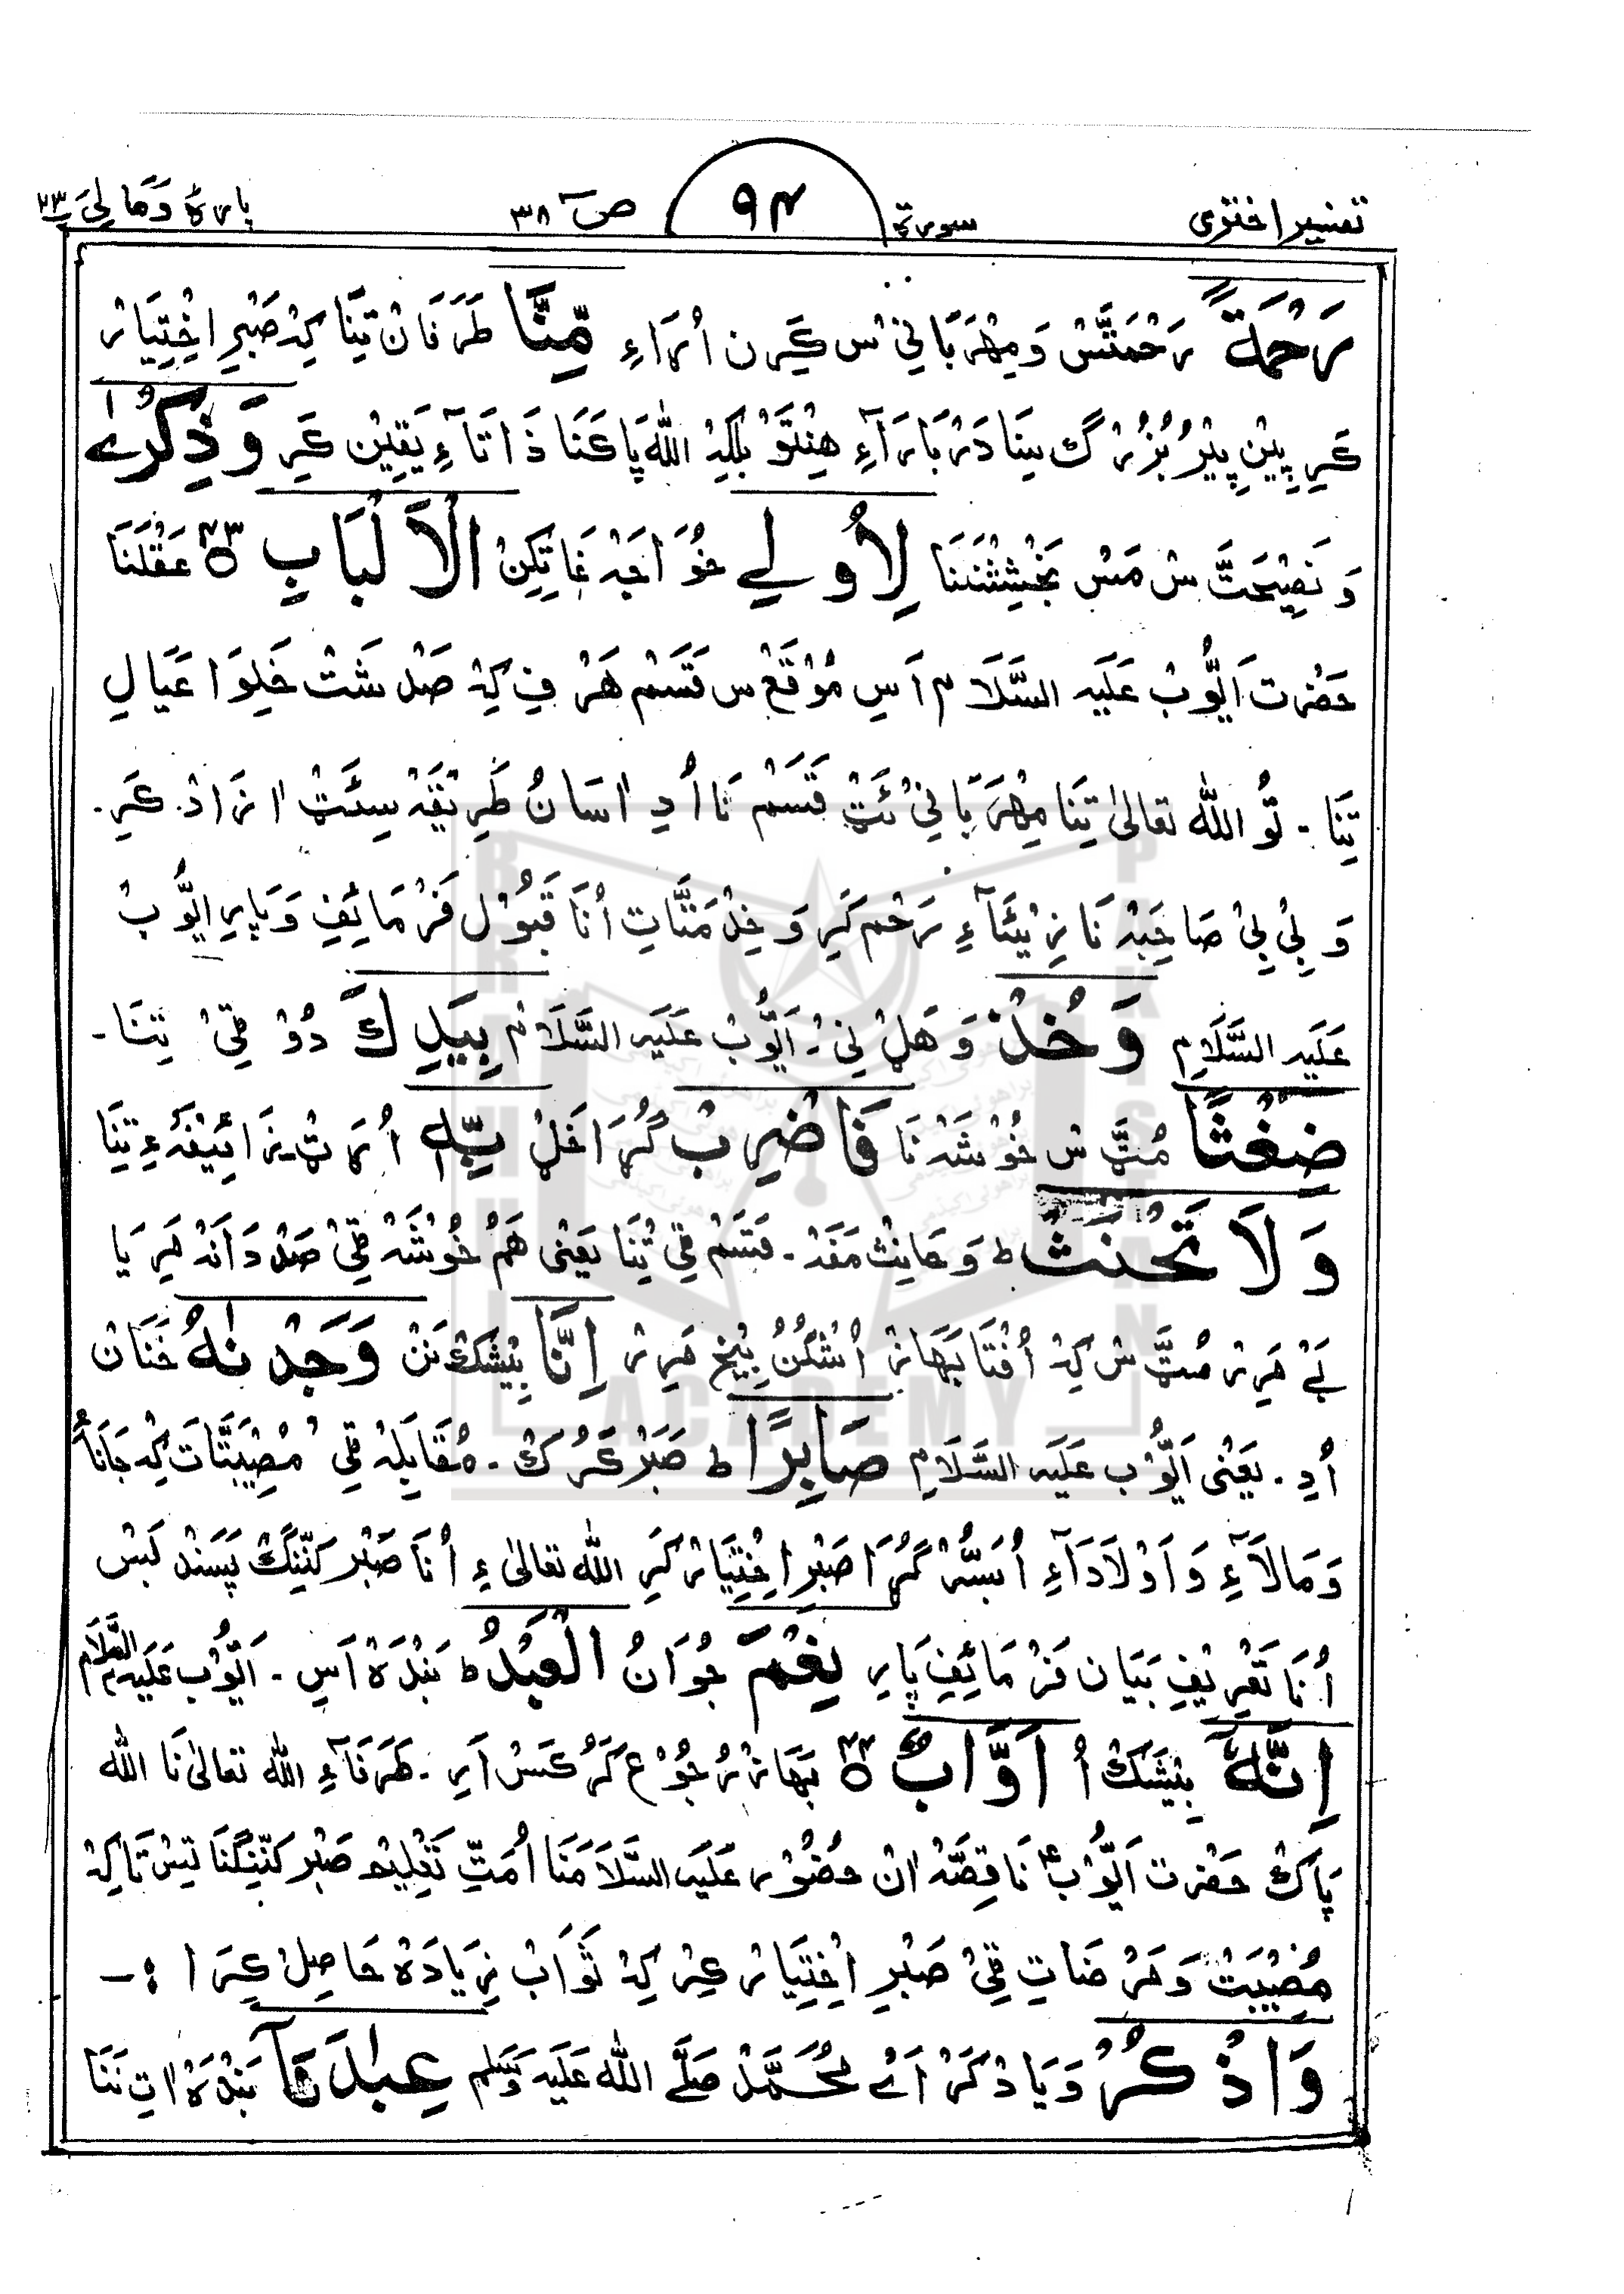 تفسیر اختری سورۃ ۹۴ صٓ ۳۸ پارہ وَمَا لِیَ ۲۳
رَحْمَۃً رَحْمَتَّسْ وَ مِھْرَبَانِیْ سْ کَرِن اُرَاءِ مِّنَّا طَرَفَانْ تِنَا کِہْ صَبْرِ اخْتِیَارْ
کَرِ پِیْنِ پِیْرُ بُزُرْگ سِنَا دَرْبَارَآءِ ھِنْتَوْ بَلْکِہْ اللّٰہ پَاکَنَا ذَاتَآءِ یَقِیْن کَرِ وَ ذِکْرٰے
وَ نَصِیْحَتَّ سْ مَسْ بَخْشِشْنَنَا لِاُولِے خُوَاجَہْ غَاتِکِنْ الْاَلْبَابِ ۵ ۴۳ عَقْلَنَا
حَضْرَت اَیُّوْبْ عَلَیْہِ السَّلَام اَسِ مَوْقَعْ س قَسَمْ ھَرْفِ کِہْ صَدْ شَتْ خَلِوَا عَیَالِ
تِنَا ۔ تُو اللّٰہ تعالیٰ تِنَا مِھْرَبَانِیْ ئَٹْ قَسَمْ نَا اُدِ اٰسَانُ طَرِیْقَہْ سِئَٹْ اٰزَادْ کَرِ ۔
وَ بِیْ بِیْ صَاحِبَہْ نَا نِیْئَآءِ رَحْم کَرِ وَ خِدْمَتَّاتِ اُنَا قَبُوْل فَرْمَائِفِ وَ پَارِ ایُّوْبْ
عَلَیْہِ السَّلَامِ وَخُذْ وَ ھَلْ نِیْ ۔ اَیُّوْبْ عَلَیْہِ السَّلَامْ بِیَدِكَ دُوْ ٹِیْ تِنَا ۔
ضِغْثًا مُٹَّ سْ خُوْشَہْ نَا فَاضْرِبْ گُڑَا خَلْ بِّہٖ اُرَٹْ زَائِیْفَہْ ءِ تِنَا
وَلَا تَحْنَثْ ط وَ حَانِثْ مَفَہْ ۔ قَسَمْ ٹِیْ تِنَا یَعْنِی ھَمُ خُوْشَہْ ٹِیْ صَدْ دَانَہْ مَرِ یَا
بَےْ مَرِرْ مُٹَّ سْ کِہْ اُفْتَا بَھَازْ اُسْکُنُ بِیْخ مَرِرْ اِنَّا بِیْشَکْ نَنْ وَجَدْنٰہُ خَنَانْ
اُدِ ۔ یَعْنِی اَیُّوْب عَلَیْہِ السَّلَامِ صَابِرًا ط صَبْر کَرُکْ ۔ مُقَابِلَہْ ٹِیْ مُصِیْبَتَّاتْ کِہْ جَانَاُ
وَ مَالَآءِ وَ اَوْلَادَآءِ اُبَسُّرْ گُڑَا صَبْرِ اخْتِیَارْ کَرِ اللّٰہ تعالیٰ ءِ اُنَا صَبْر کَنِّنِگْ پَسَنْد بَسْ
اُنَا تَعْرِیْفِ بَیَان فَرْمَائِفِ پَارِ نِعْمَ جُوَانُ الْعَبْدُ ط بَنْدَہْ اَسِ ۔ اَیُّوْب عَلَیْہِ السَّلَام
اِنَّہٗٓ بِیْشَکْ اُ اَوَّابٌ ۵ ۴۴ بَھَازْ رُجُوْع کَرُکَسْ اَرِ ۔ طَرَفَآءِ اللّٰہ تعالیٰ نَا اللّٰہ
پَاکْ حَضْرت اَیُّوْبْؑ نَا قِصَّہْ انْ حُضُوْر عَلَیْہِ السَّلَامَنَا اُمَتِّ تَعْلِیْم صَبْر کَنِّنِگْنَا تِسْ تَاکِہْ
مُصِیْبَتْ وَ مَرْضَاتِ ٹِیْ صَبْرِ اخْتِیَارْ کِرْ کِہْ ثَوَابْ زِیَادَہْ حَاصِلْ کِرَا :۔
وَاذْکُرْ وَ یَادْکَرْ اَےْ مُحَمَّدْ صَلَّے اللّٰہ عَلَیْہِ وَسَلَّم عِبٰدَنَآ بَنْدَہْ اتِ نَنَا
BRAHUI
ACADEMY
PAKISTAN